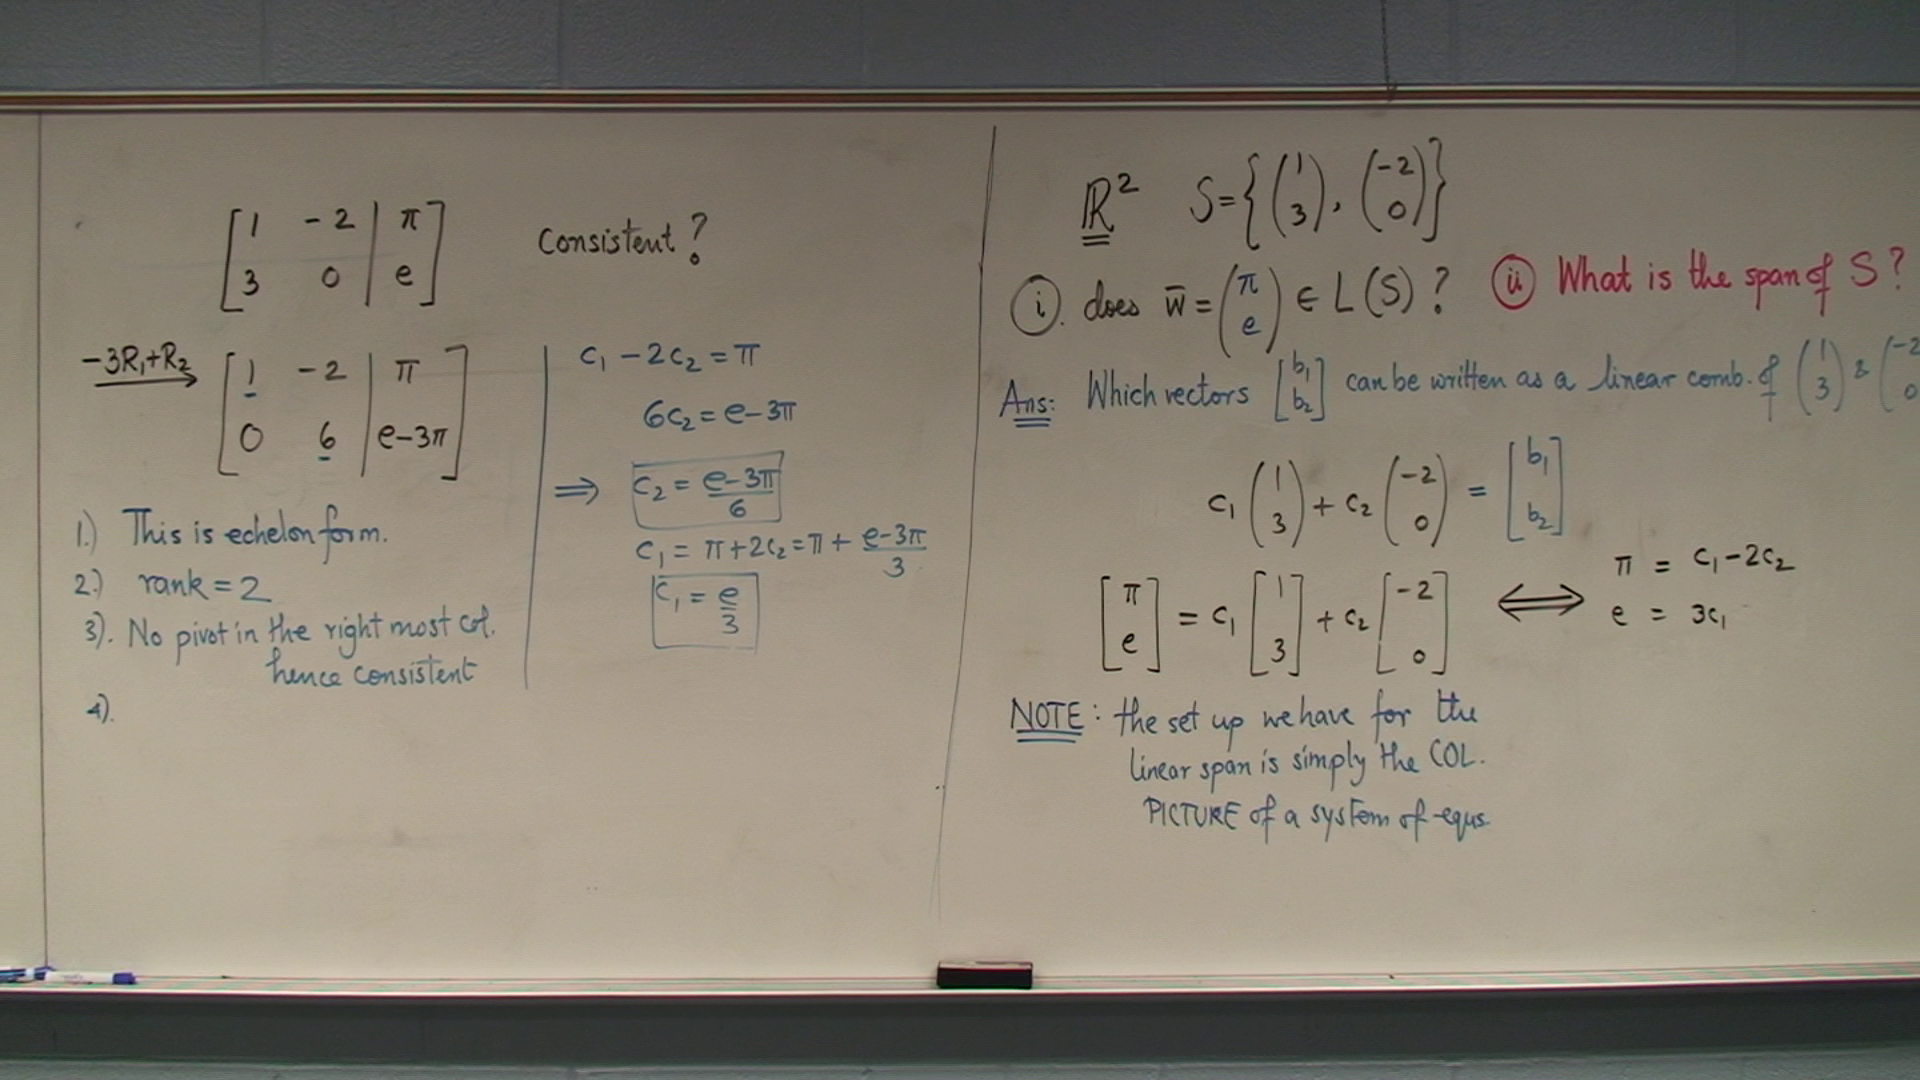 [1 -2 | π]
[3 0 | e]
Consistent?
-3R₁+R₂
[1 -2 | π]
[0 6 | e-3π]
1.) This is echelon form.
2.) rank = 2
3). No pivot in the right most col.
hence consistent
4).
c₁ - 2c₂ = π
6c₂ = e-3π
⇒ c₂ = (e-3π)/6
c₁ = π+2c₂ = π + (e-3π)/3
c₁ = e/3
ℝ² S = {(1 3), (-2 0)}
(i). does w̄ = (π e) ∈ L(S)? (ii) What is the span of S?
Ans: Which vectors [b₁ b₂] can be written as a linear comb. of (1 3) & (-2 0
c₁ (1 3) + c₂ (-2 0) = [b₁ b₂]
[π e] = c₁ [1 3] + c₂ [-2 0] ⟺
π = c₁ - 2c₂
e = 3c₁
NOTE: the set up we have for the
linear span is simply the COL.
PICTURE of a system of equs